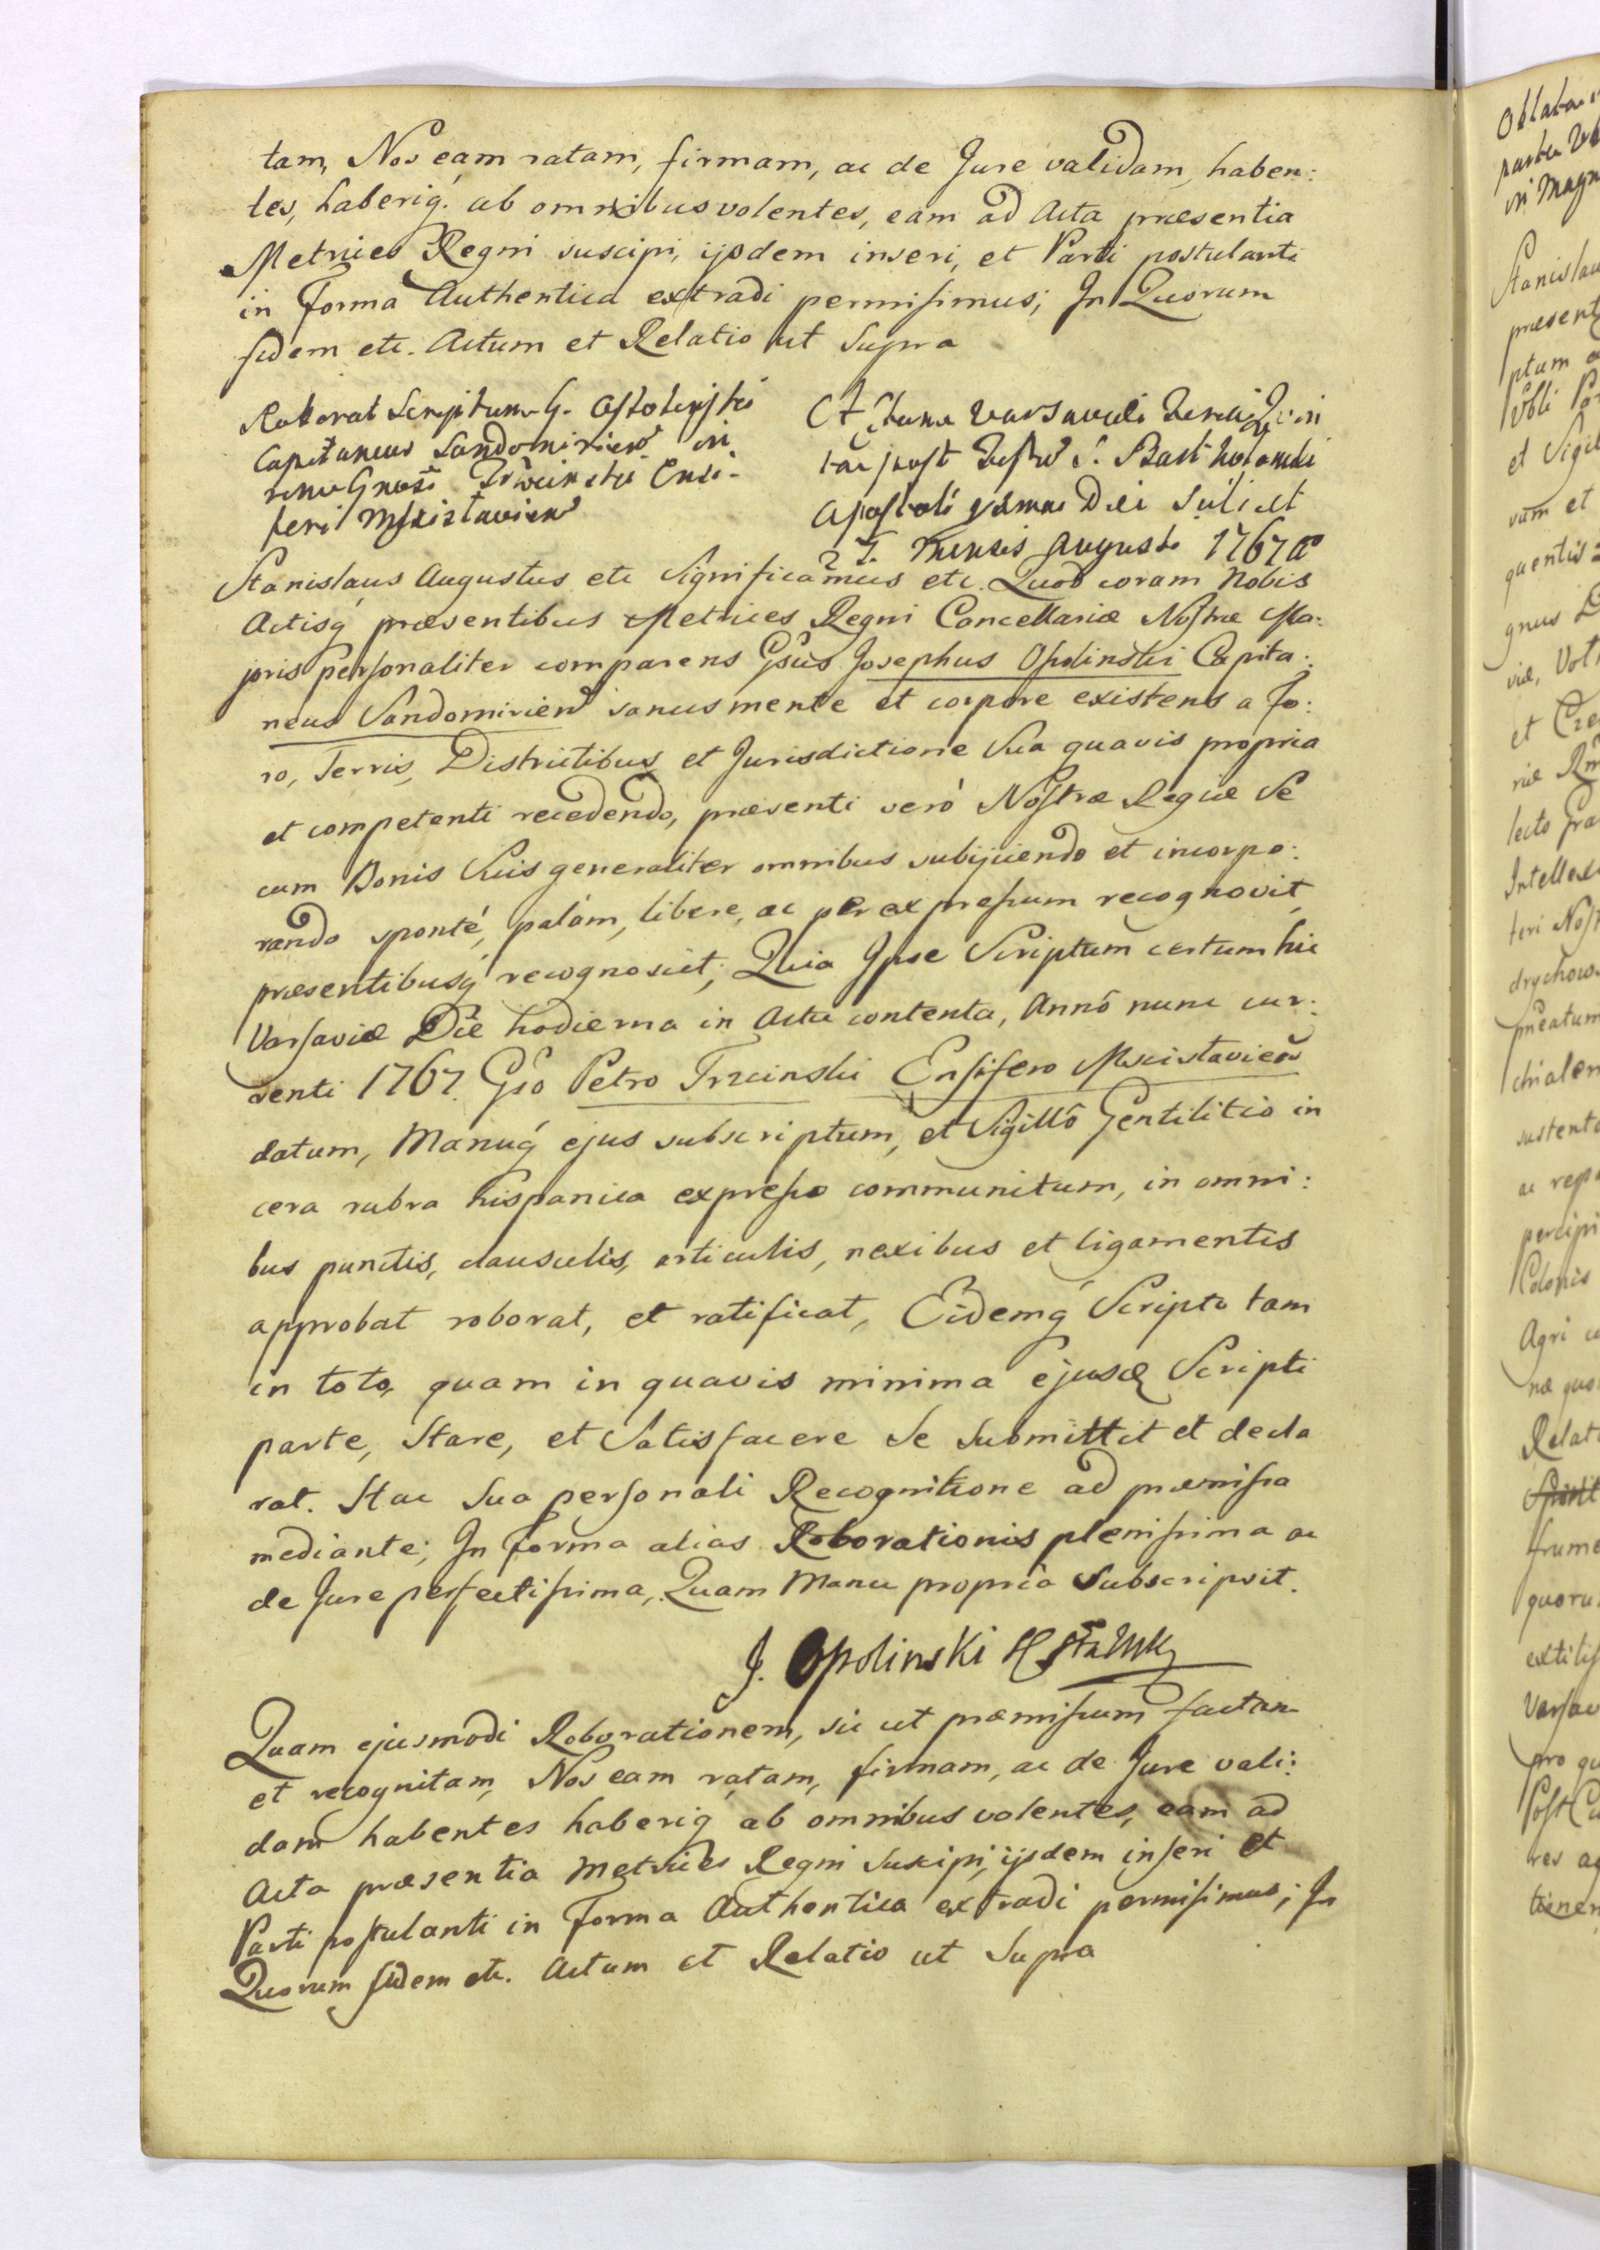 tam, Nos eam ratam, firmam, ac de Jure validam, haben:
tes, haberiq. ab omnibus volentes, eam ad Acta præsentia
Metrices Regni suscipi, ijsdem inseri, et Parti postulanti
in Forma Authentica extradi permisimus; In Quorum
fidem etc. Actum et Relatio ut Supra
Roborat Scriptum G.
Capitaneus Sandomirien in
rem Gnosi Trzcinski Ensi-
feri Mscislavien
Actum Varsaviæ Feria
post Festum S. Bartholomæi
Apostoli proxima Die Scilicet
27. Mensis Augusti 1767 Ao
Stanislaus Augustus etc Significamus etc. Quod coram Nobis
Actisq præsentibus Metrices Regni Cancellariæ Nostræ Ma:
joris personaliter comparens Gsus Josephus Opolinski Capita:
neus Sandomirien sanus mente et corpore existens a Fo:
ro, Terris, Districtibus et Jurisdictione Sua quavis propria
et competenti recedendo, præsenti verò Nostræ Regiæ Se
cum Bonis Suis generaliter omnibus subijiciendo et incorpo:
rando sponté, palàm, libere, ac per expressum recognovit
præsentibusq recognoscit; Quia Ipse Scriptum certum hic
Varsaviæ Die hodierna in Actu contenta, Annô nunc cur:
renti 1767. Gso Petro Trzcinski Ensifero Mscislavien
datum, Manuq ejus subscriptum, et Sigillô Gentilitio in
cera rubra hispanica expresso communitum, in omni:
bus punctis, clausulis, articulis, nexibus et ligamentis
approbat roborat, et ratificat, Eidemq Scripto tam
in toto, quam in quavis minima ejusd Scripti
parte, Stare, et Satisfacere Se Submittit et decla
rat. Hac Sua personali Recognitione ad præmissa
mediante; In Forma alias Roborationis plenissima ac
de Jure perfectissima, Quam Manu propria Subscripsit.
J. Opolinski
Quam ejusmodi Roborationem, sic ut præmissum factam
et recognitam, Nos eam ratam, firmam, ac de Jure vali:
dam habentes haberiq ab omnibus volentes, eam ad
Acta præsentia Metrices Regni Suscipi, ijsdem inseri et
Parti postulanti in Forma Authentica extradi permisimus; In
Quorum fidem etc. Actum et Relatio ut Supra